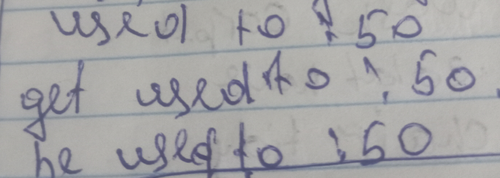 used to : 50
get used to : 50.
be used to : 50